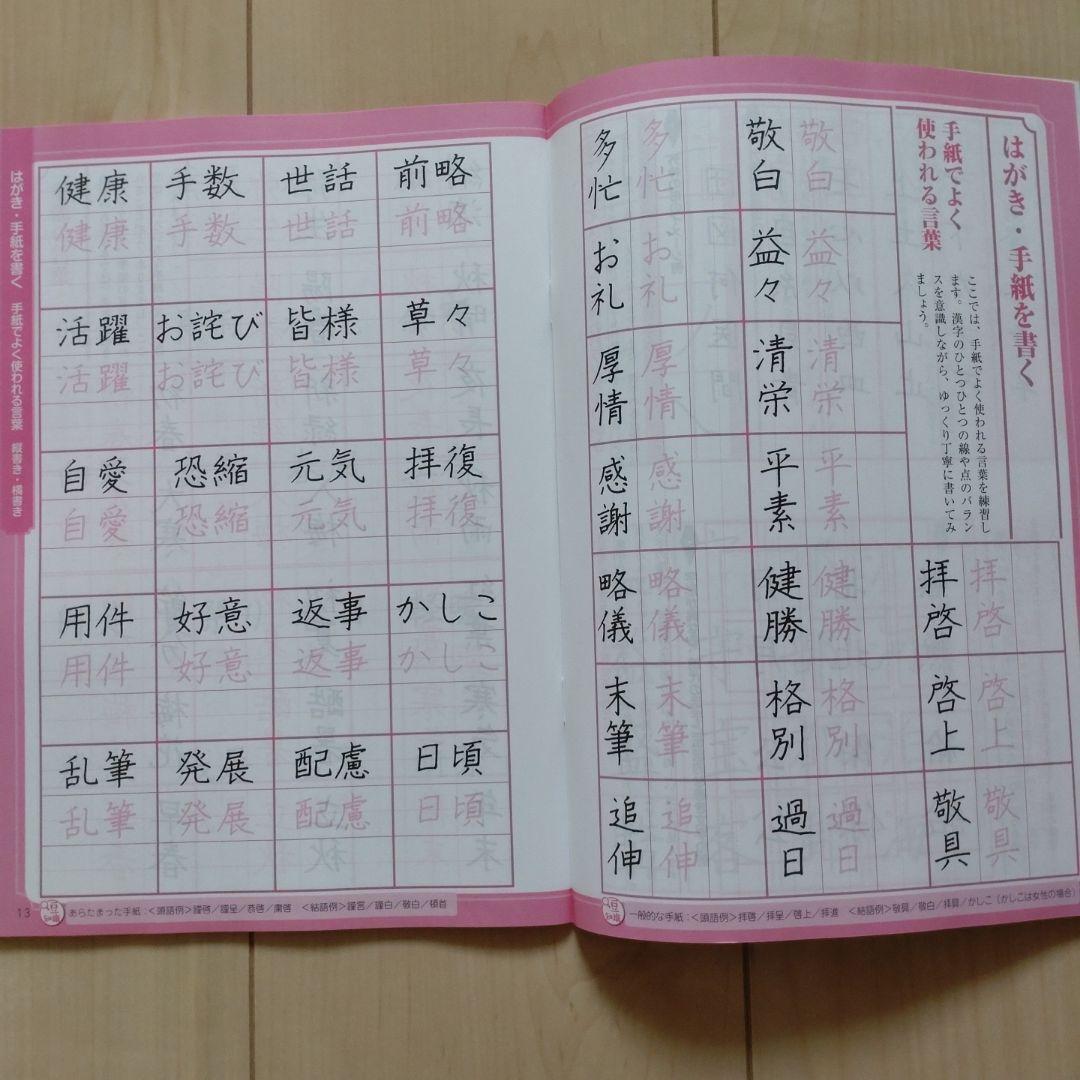 はがき・手紙を書く
手紙でよく
使われる言葉
ここでは、手紙でよく使われる言葉を練習し
ます。漢字のひとつひとつの線や点のバラン
スを意識しながら、ゆっくり丁寧に書いてみ
ましょう。
拝啓 拝啓
啓上 啓上
敬具 敬具
敬白 敬白
益々 益々
清栄 清栄
平素 平素
健勝 健勝
格別 格別
過日 過日
多忙 多忙
お礼 お礼
厚情 厚情
感謝 感謝
略儀 略儀
末筆 末筆
追伸 追伸
豆知識
一般的な手紙:<頭語例>拝啓/拝呈/啓上/拝進 <結語例>敬具/敬白/拝具/かしこ(かしこは女性の場合)
健康 手数 世話 前略
健康 手数 世話 前略
活躍 お詫び 皆様 草々
活躍 お詫び 皆様 草々
自愛 恐縮 元気 拝復
自愛 恐縮 元気 拝復
用件 好意 返事 かしこ
用件 好意 返事 かしこ
乱筆 発展 配慮 日頃
乱筆 発展 配慮 日頃
はがき・手紙を書く 手紙でよく使われる言葉 縦書き・横書き
13
豆知識
あらたまった手紙:<頭語例>謹啓/謹呈/恭啓/粛啓 <結語例>謹言/謹白/敬白/頓首